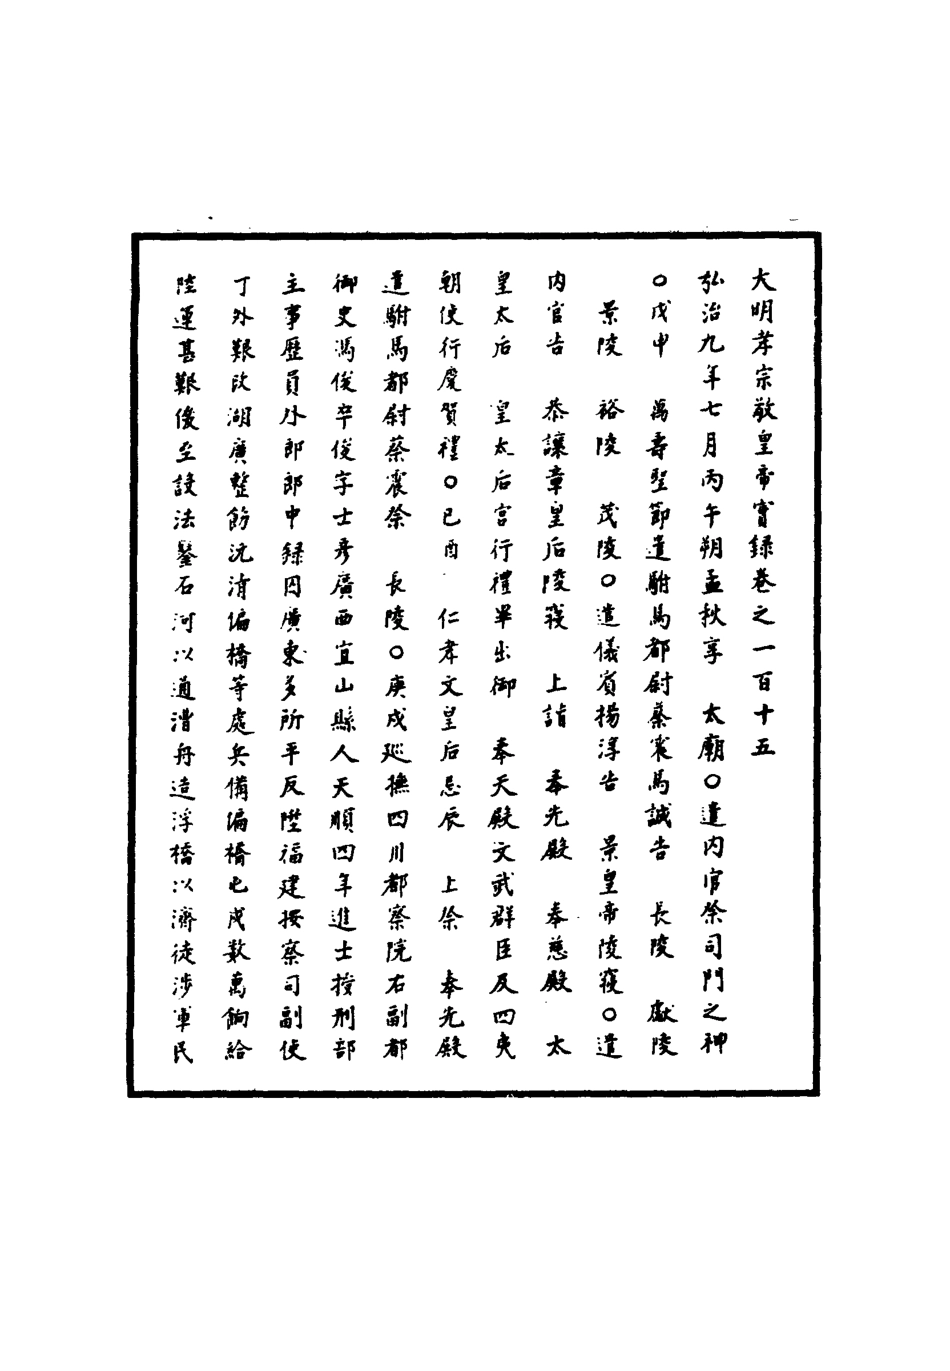 大明孝宗敬皇帝實録卷之一百十五
弘治九年七月丙午朔孟秋享　太廟○遣内官祭司門之神
○戊申　萬壽聖節遣駙馬都尉蔡震馬誠告　長陵　獻陵
景陵　裕陵　茂陵○遣儀賓楊淳告　景皇帝陵寢○遣
内官告　恭讓章皇后陵寢　上詣　奉先殿　奉慈殿　太
皇太后　皇太后宫行禮畢出御　奉天殿文武群臣及四夷
朝使行慶賀禮○己酉　仁孝文皇后忌辰　上祭　奉先殿
遣駙馬都尉蔡震祭　長陵○庚戌巡撫四川都察院右副都
御史馮俊卒俊字士彦廣西宜山縣人天順四年進士授刑部
主事歷員外郎郎中録囚廣東多所平反陞福建按察司副使
丁外艱改湖廣整飭沅清偏橋等處兵備偏橋屯戍數萬餉給
陸運甚艱俊至設法鑿石河以通漕舟造浮橋以濟徒涉軍民